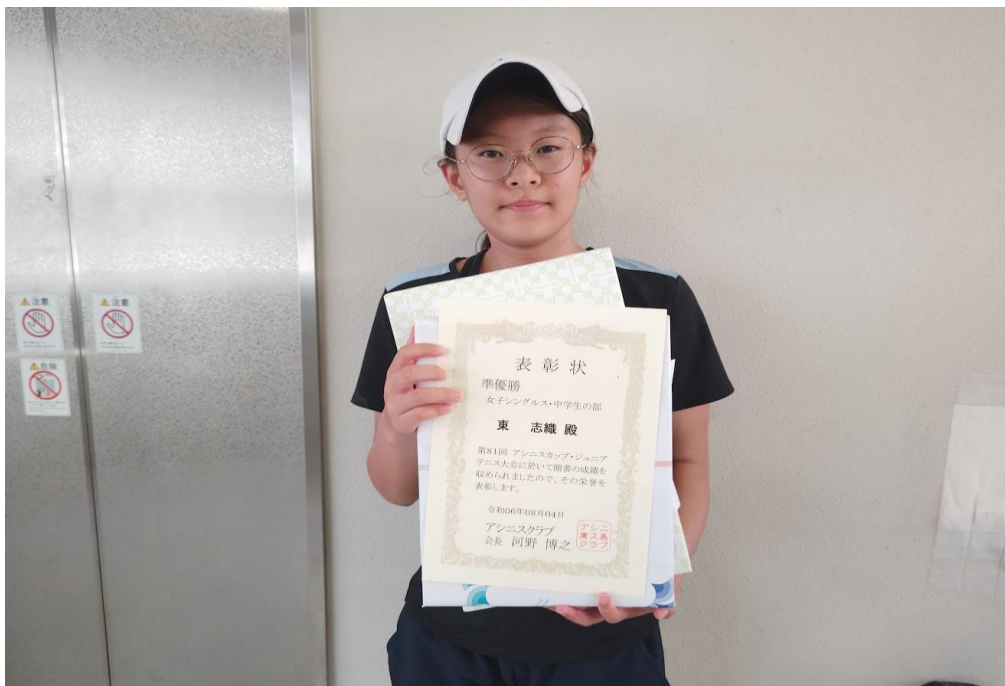 表彰状
準優勝
女子シングルス・中学生の部
東 志織 殿
第81回 アシニスカップ・ジュニア
テニス大会に於いて頭書の成績を
収められましたので、その栄誉を
表彰します。
令和06年08月04日
アシニスクラブ
会長 河野 博之
アシニ
廣ス島
クラブ
注意
注意
危険